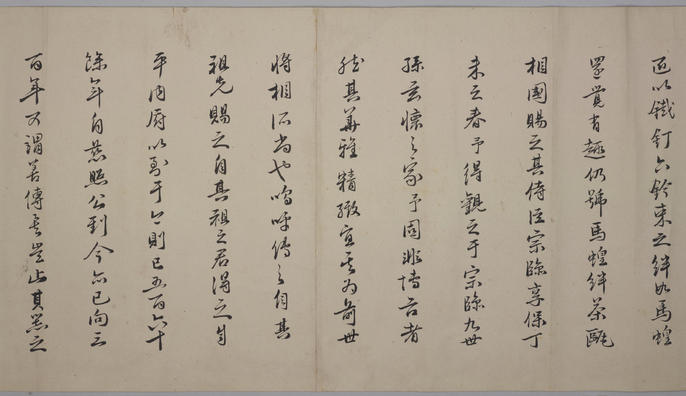 匠以鐵釘六鈐束之絆如馬蝗
還覺有趣仍號馬蝗絆茶甌
相國賜之其侍臣宗臨享保丁
未之春予得觀之于宗臨九世
孫玄懷之家予固非博古者
然其華雅精緻宜其為前世
將相所尚也嗚呼傳之自其
祖先賜之自其祖之君得之自
平内府以到于今則已五百六十
餘年自慈照公到今亦已向三
百年可謂善傳矣豈止其器之